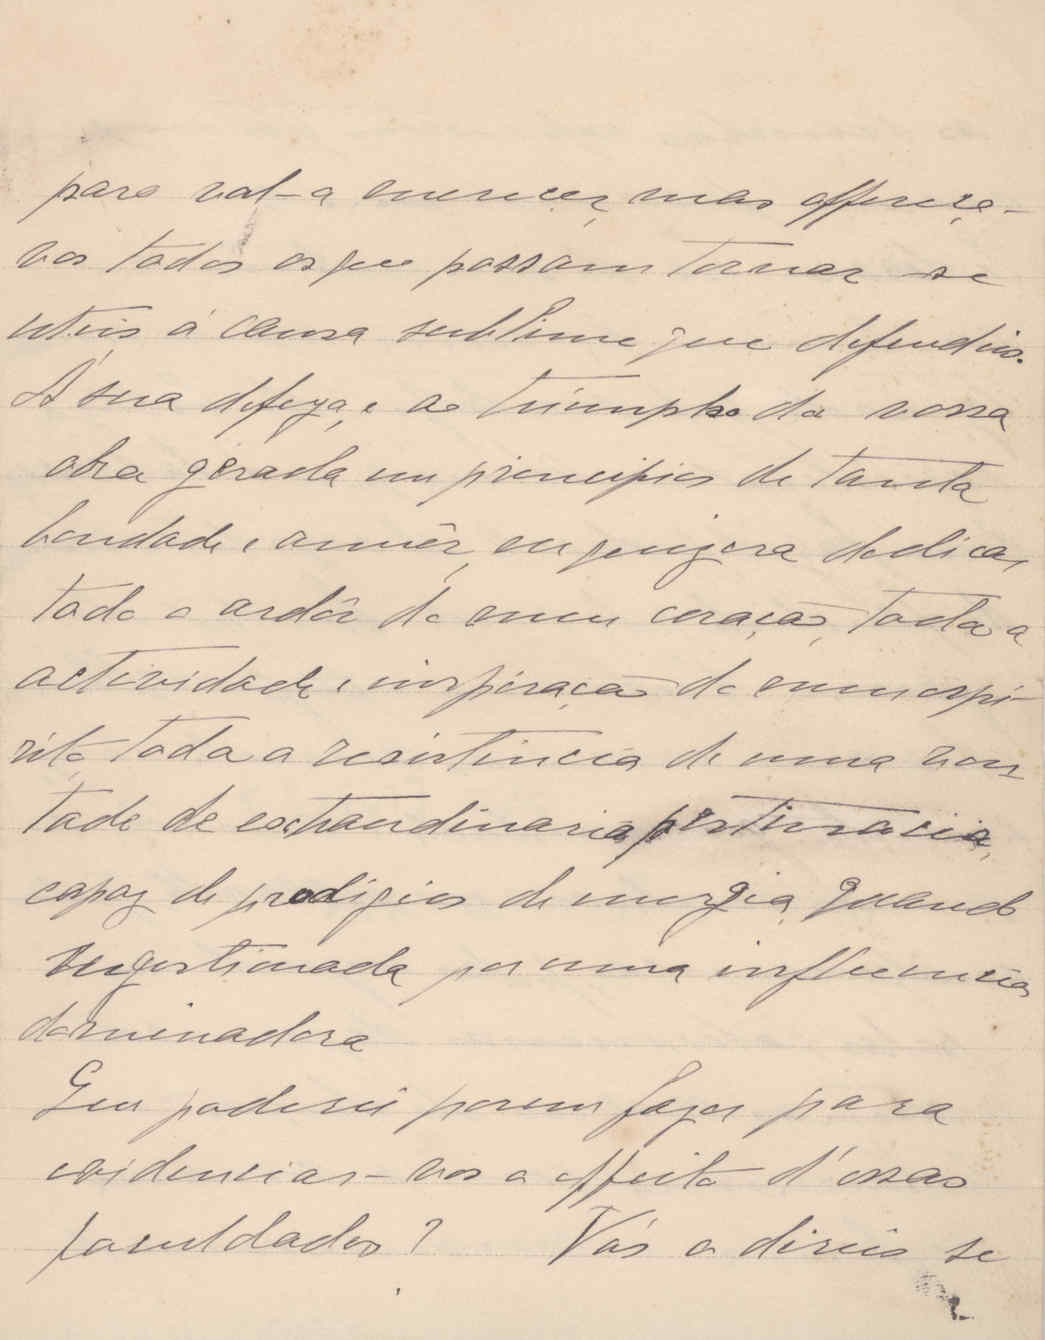 para vol-a merecer, mas offereço-
vos todos os que possam tornar-se
uteis á causa sublime que defendeis.
Á sua defeza, e ao triumpho da vossa
obra gerada em principios de tanta
bondade e amôr, eu quizera dedicar
todo o ardôr do meu coração, toda a
actividade e inspiração do meu espi-
rito toda a resistencia de uma von
tade de extraordinaria pertinacia,
capaz de prodigios de energia, quando
sugestionada por uma influencia
dominadora
Que poderei porem fazer para
evidenciar-vos o effeito d'essas
faculdades? Vós o direis se